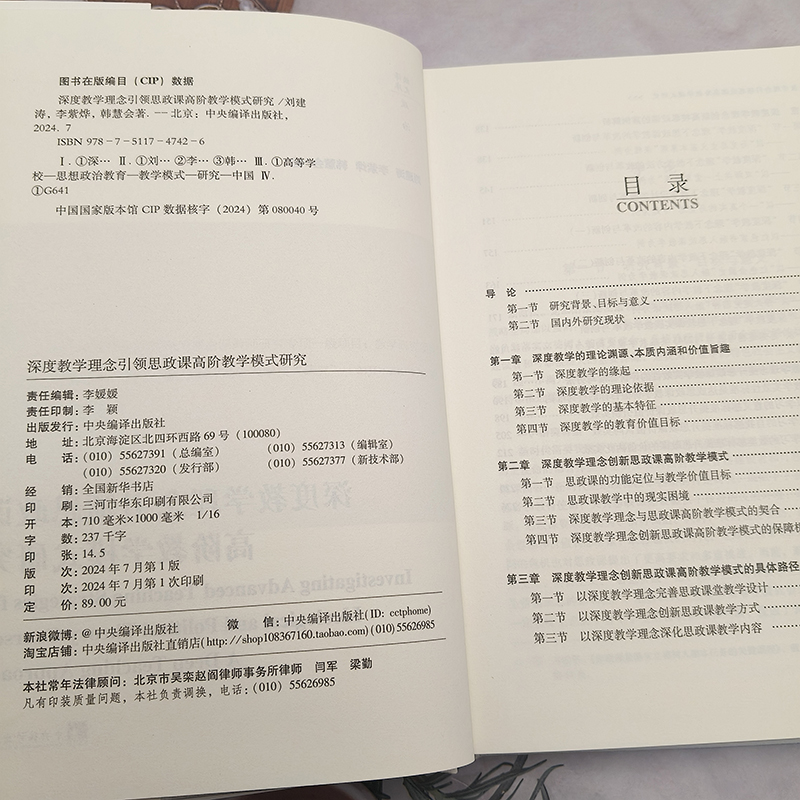 图书在版编目（CIP）数据
深度教学理念引领思政课高阶教学模式研究 / 刘建
涛，李紫烨，韩慧会著. -- 北京：中央编译出版社，
2024. 7
ISBN 978-7-5117-4742-6
Ⅰ. ①深… Ⅱ. ①刘… ②李… ③韩… Ⅲ. ①高等学
校—思想政治教育—教学模式—研究—中国 Ⅳ.
①G641
中国国家版本馆 CIP 数据核字（2024）第 080040 号
深度教学理念引领思政课高阶教学模式研究
责任编辑：李媛媛
责任印制：李 颖
出版发行：中央编译出版社
地 址：北京海淀区北四环西路 69 号（100080）
电 话：（010）55627391（总编室） （010）55627313（编辑室）
（010）55627320（发行部） （010）55627377（新技术部）
经 销：全国新华书店
印 刷：三河市华东印刷有限公司
开 本：710 毫米×1000 毫米 1/16
字 数：237 千字
印 张：14.5
版 次：2024 年 7 月第 1 版
印 次：2024 年 7 月第 1 次印刷
定 价：89.00 元
新浪微博：@中央编译出版社 微 信：中央编译出版社(ID: cctphome)
淘宝店铺：中央编译出版社直销店(http://shop108367160.taobao.com)(010)55626985
本社常年法律顾问：北京市吴栾赵阎律师事务所律师 闫军 梁勤
凡有印装质量问题，本社负责调换，电话：(010) 55626985
目 录
CONTENTS
导 论
第一节 研究背景、目标与意义
第二节 国内外研究现状
第一章 深度教学的理论渊源、本质内涵和价值旨趣
第一节 深度教学的缘起
第二节 深度教学的理论依据
第三节 深度教学的基本特征
第四节 深度教学的教育价值目标
第二章 深度教学理念创新思政课高阶教学模式
第一节 思政课的功能定位与教学价值目标
第二节 思政课教学中的现实困境
第三节 深度教学理念与思政课高阶教学模式的契合
第四节 深度教学理念创新思政课高阶教学模式的保障机
第三章 深度教学理念创新思政课高阶教学模式的具体路径
第一节 以深度教学理念完善思政课堂教学设计
第二节 以深度教学理念创新思政课教学方式
第三节 以深度教学理念深化思政课教学内容